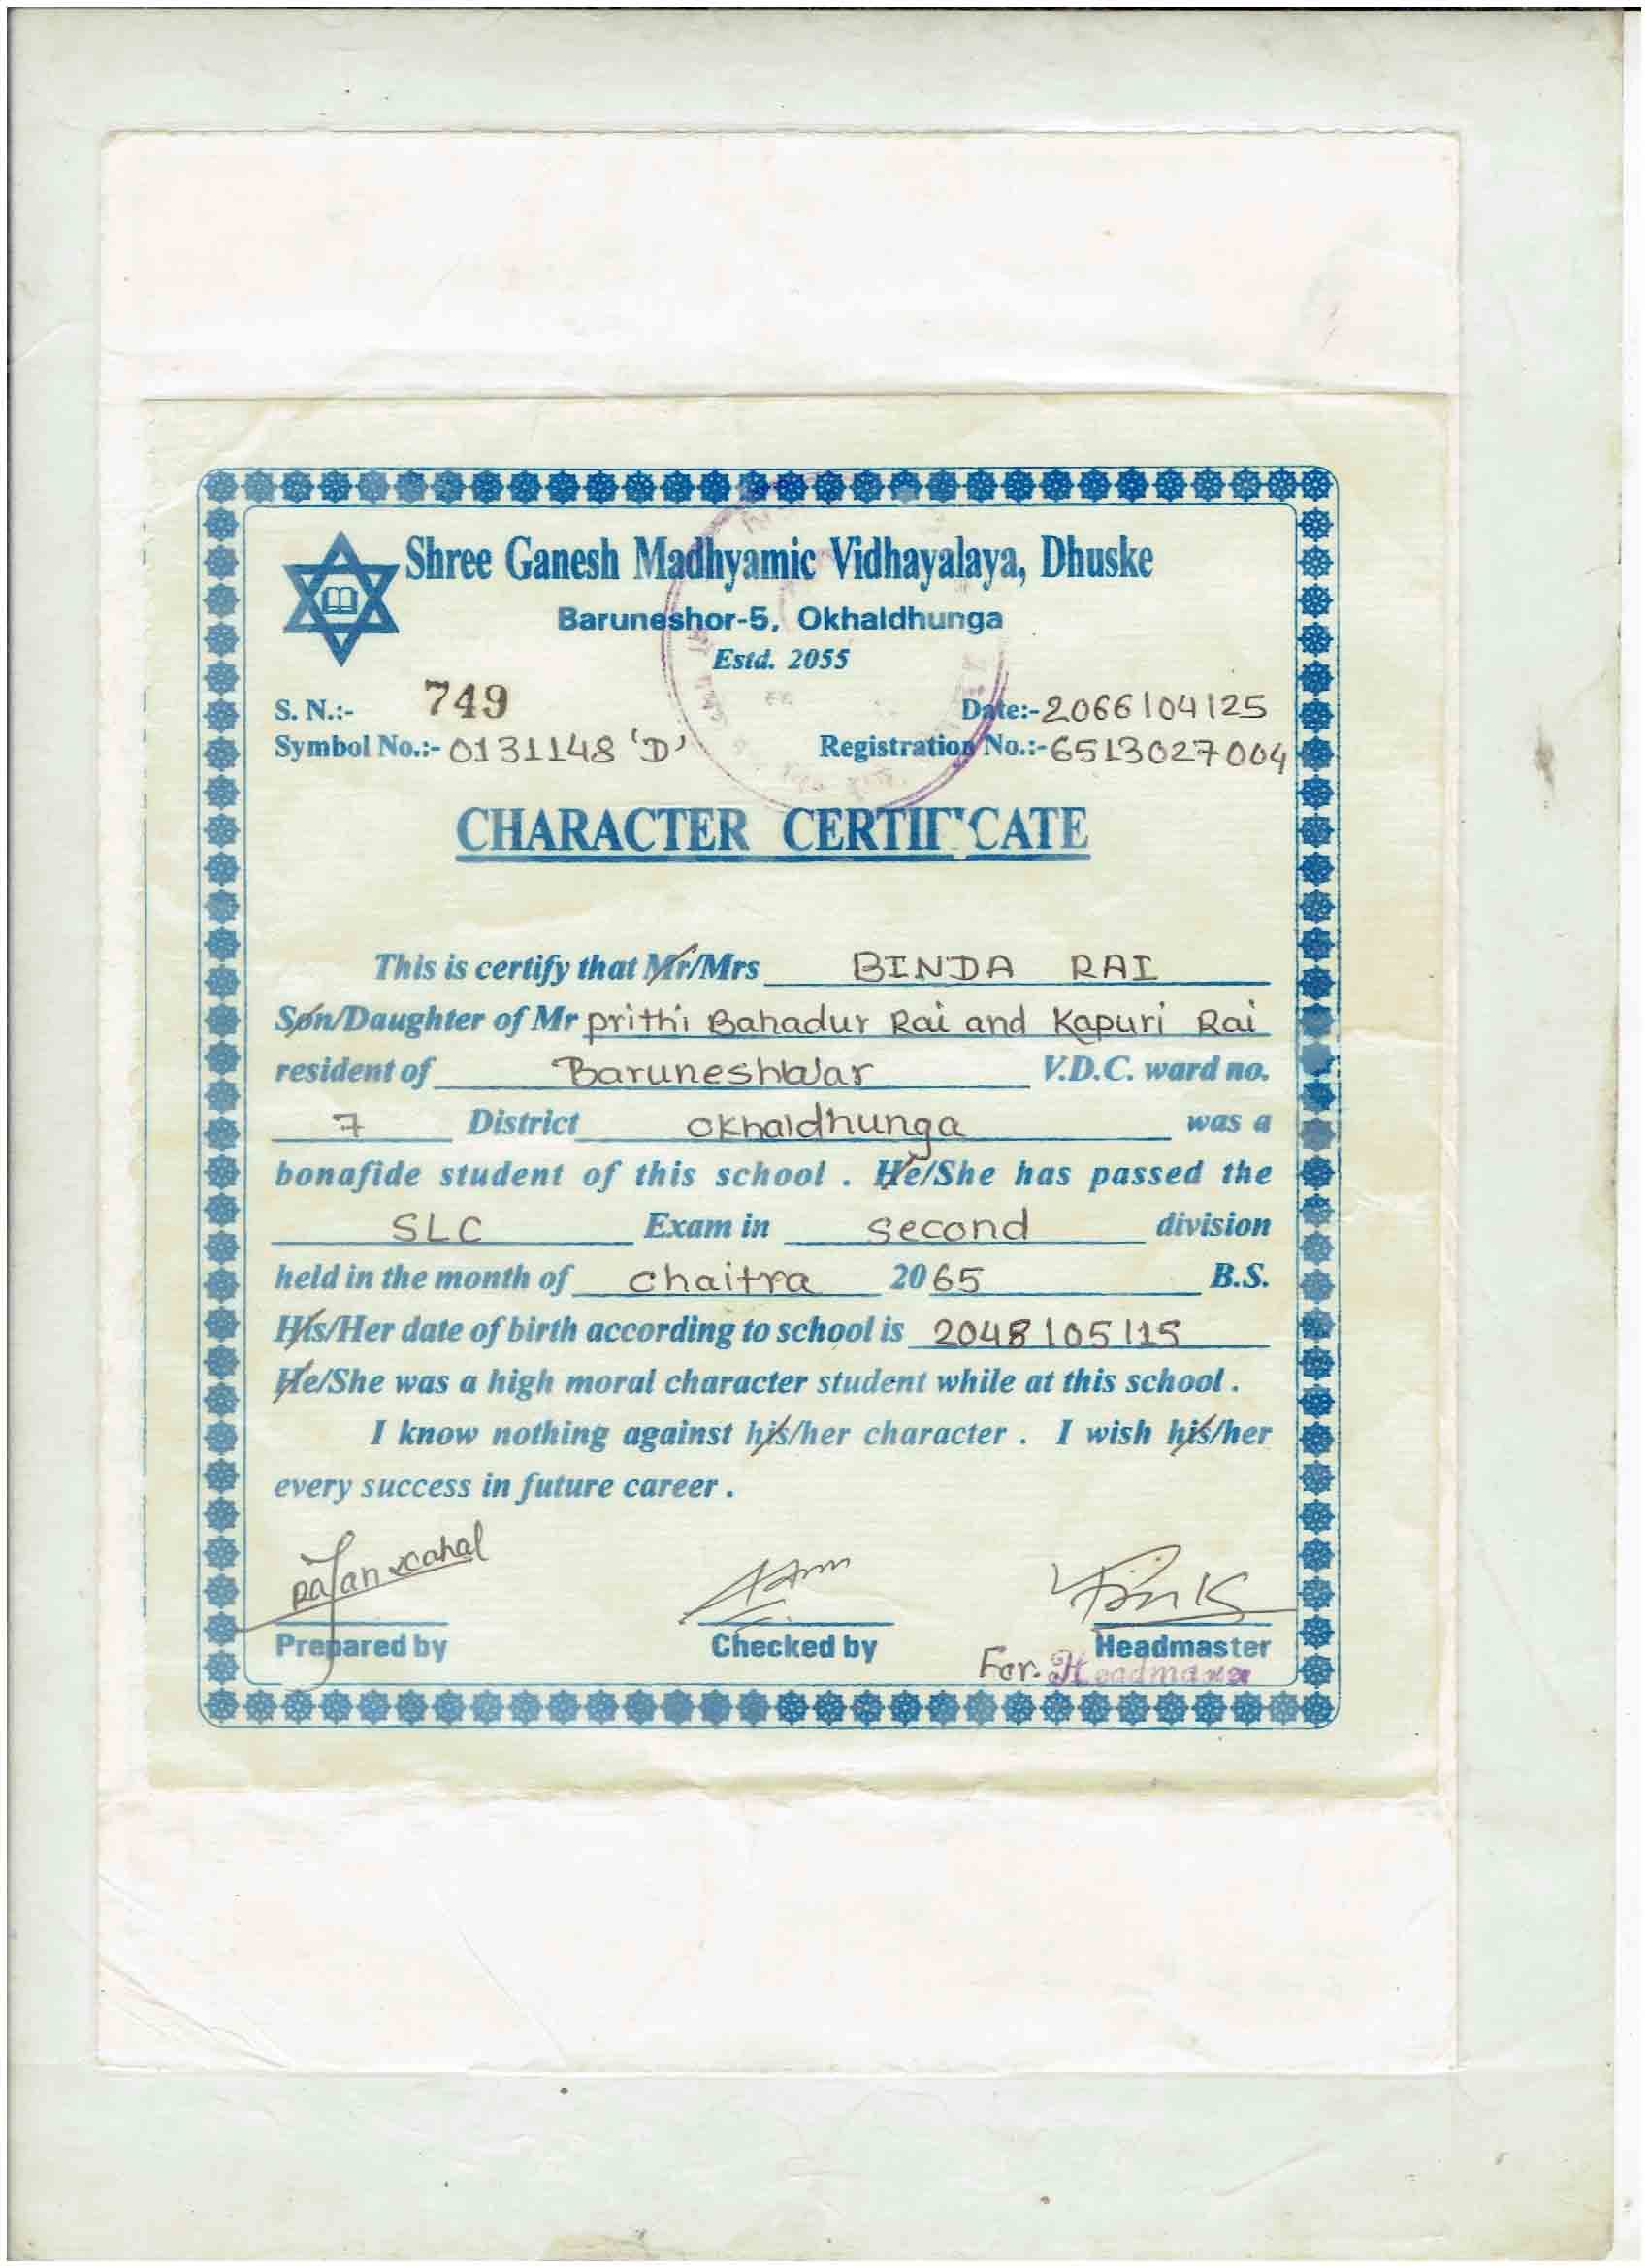 Shree Ganesh Madhyamic Vidhayalaya, Dhuske
Baruneshor-5, Okhaldhunga
Estd. 2055
S. N.:- 749 Date:- 2066/04/25
Symbol No.:- 0131148 'D' Registration No.:- 6513027004
CHARACTER CERTIFICATE
This is certify that Mr/Mrs BINDA RAI
Son/Daughter of Mr prithi Bahadur Rai and Kapuri Rai
resident of Baruneshwar V.D.C. ward no.
7 District Okhaldhunga was a
bonafide student of this school . He/She has passed the
SLC Exam in second division
held in the month of chaitra 2065 B.S.
His/Her date of birth according to school is 2048/05/15
He/She was a high moral character student while at this school .
I know nothing against his/her character . I wish his/her
every success in future career .
Prepared by Checked by Headmaster
For. Headmaster